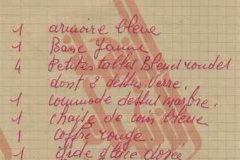 1 armoire bleue
1 Base Jaune
4 Petites tables Bleues rondes
dont 2 dessus verre.
1 commode dessus marbre.
1 chaise de coin bleue
1 coffre rouge.
1 glace dorée